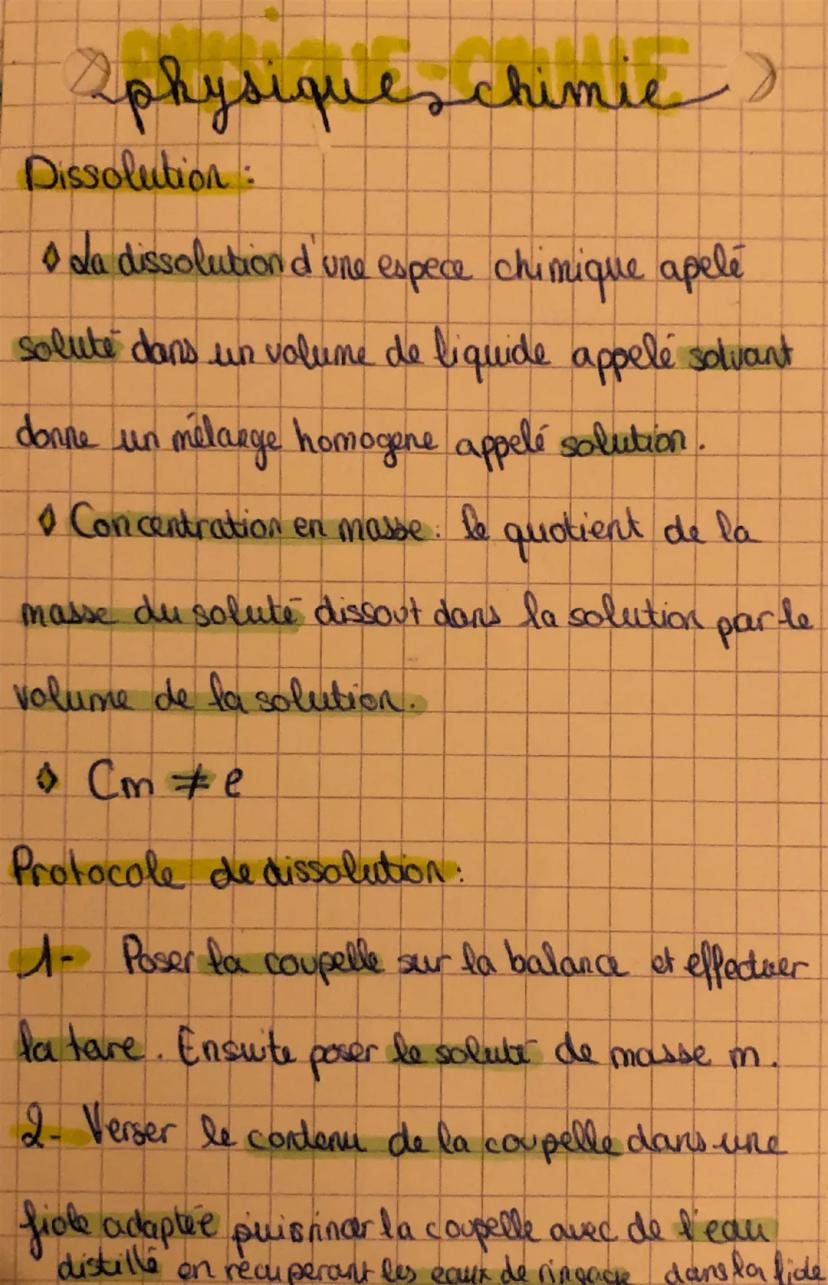 PHYSIQUE-CHIMIE
physique chimie
Dissolution :
◊ La dissolution d'une espece chimique apelé
soluté dans un volume de liquide appelé solvant
donne un mélange homogene appelé solution.
◊ Concentration en masse : le quotient de la
masse du soluté dissout dans la solution par le
volume de la solution.
◊ Cm ≠ e
Protocole de dissolution :
1- Poser la coupelle sur la balance et effectuer
la tare. Ensuite poser le soluté de masse m.
2- Verser le contenu de la coupelle dans une
fiole adaptée puis rincer la coupelle avec de l'eau
distillé en récuperant les eaux de rinçage dans la fiole